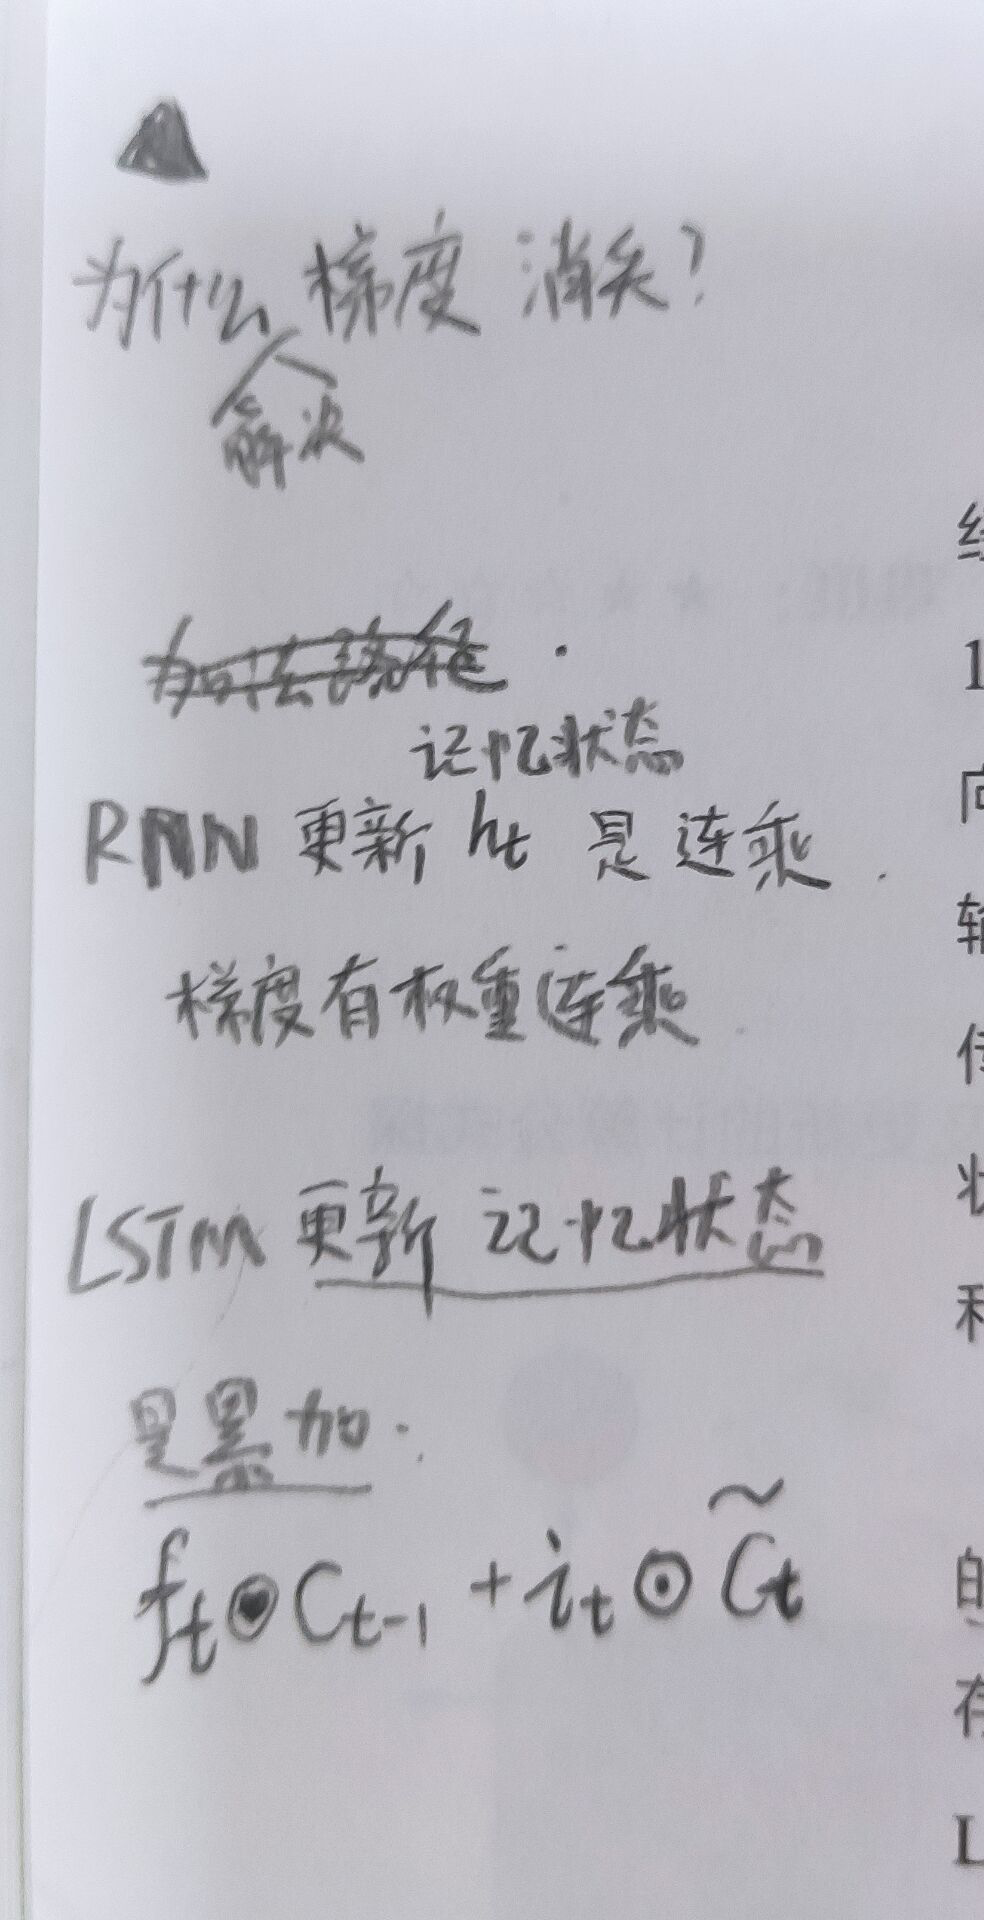 为什么解决梯度 消失?
记忆状态
RNN 更新 ht 是连乘.
梯度有权重连乘
LSTM 更新 记忆状态
是累加.
ft⊙Ct-1 + it⊙C̃t
1
向
输
传
状
和
的
存
L